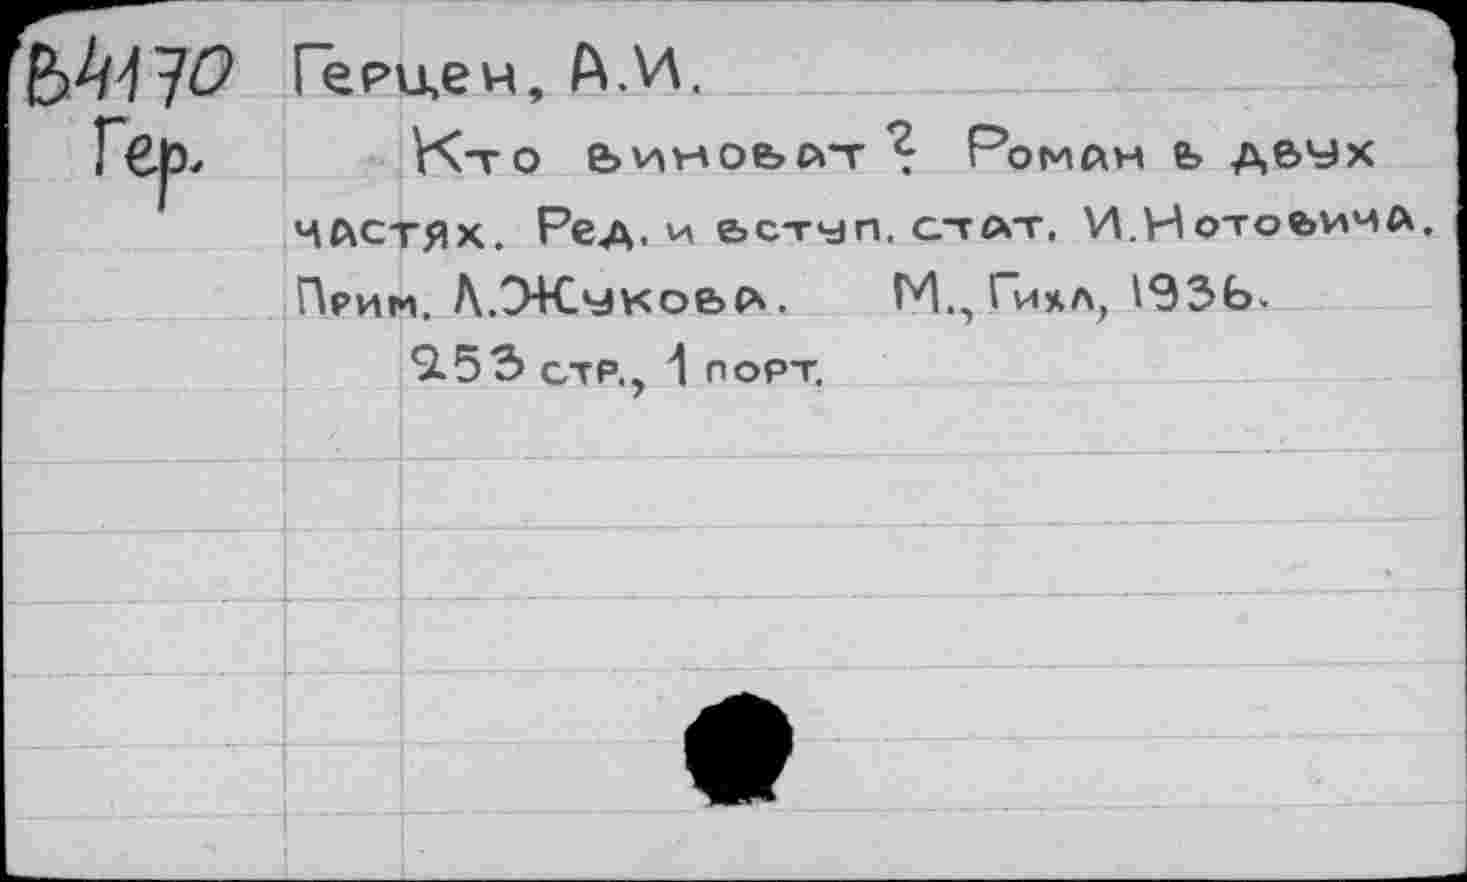 В4170 Герцен, А.И.
Гер. Кто виноват? Роман в двух
частях. Ред. и вступ. стат. И.Нотовича.
Прим. Л.Жукова. М., Гихл, 1936.
253 стр., 1 порт.